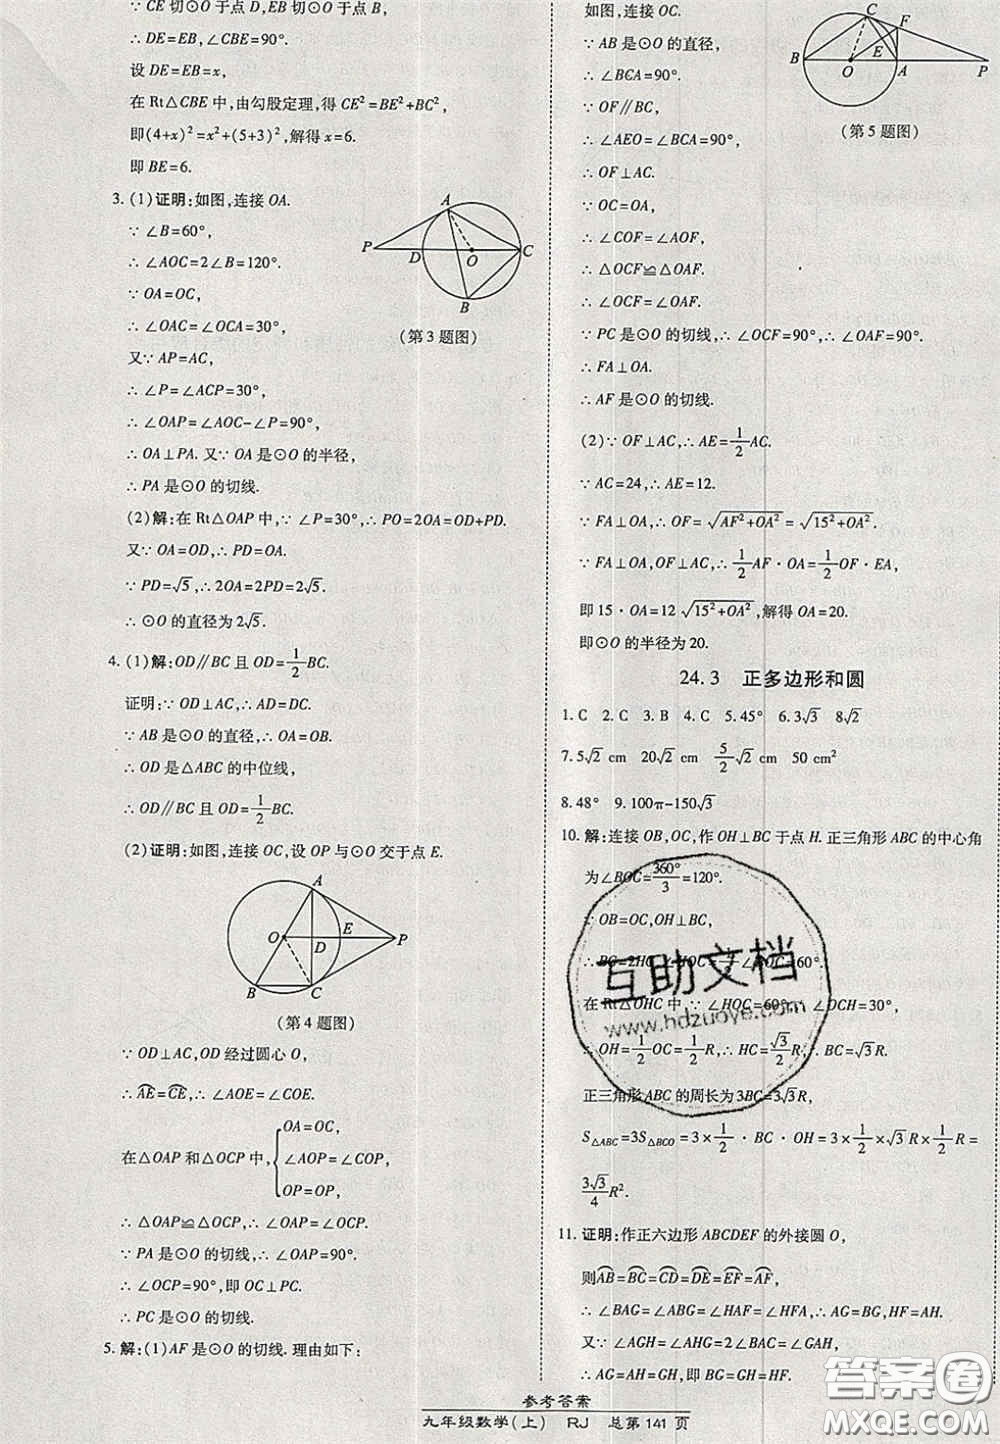 CE 切⊙O 于点 D,EB 切⊙O 于点 B,
∴ DE=EB,∠CBE=90°.
设 DE=EB=x,
在 Rt△CBE 中,由勾股定理,得 CE²=BE²+BC²,
即(4+x)²=x²+(5+3)²,解得 x=6.
即 BE=6.
3. (1)证明:如图,连接 OA.
∵ ∠B=60°,
∴ ∠AOC=2∠B=120°.
∵ OA=OC,
∴ ∠OAC=∠OCA=30°,
又∵ AP=AC,
∴ ∠P=∠ACP=30°,
∴ ∠OAP=∠AOC-∠P=90°,
∴ OA⊥PA. 又∵ OA 是⊙O 的半径,
∴ PA 是⊙O 的切线.
A
P
D
O
C
B
(第 3 题图)
(2)解:在 Rt△OAP 中,∵ ∠P=30°,∴ PO=2OA=OD+PD.
又∵ OA=OD,∴ PD=OA.
∵ PD=√5,∴ 2OA=2PD=2√5.
∴ ⊙O 的直径为 2√5.
4. (1)解:OD∥BC 且 OD=1/2BC.
证明:∵ OD⊥AC,∴ AD=DC.
∵ AB 是⊙O 的直径,∴ OA=OB.
∴ OD 是△ABC 的中位线,
∴ OD∥BC 且 OD=1/2BC.
(2)证明:如图,连接 OC,设 OP 与⊙O 交于点 E.
A
O
E
D
P
B
C
(第 4 题图)
∵ OD⊥AC,OD 经过圆心 O,
∴ A͡E=C͡E,∴ ∠AOE=∠COE.
在△OAP 和△OCP 中,{OA=OC,
∠AOP=∠COP,
OP=OP,
∴ △OAP≌△OCP,∴ ∠OAP=∠OCP.
∵ PA 是⊙O 的切线,∴ ∠OAP=90°.
∴ ∠OCP=90°,即 OC⊥PC.
∴ PC 是⊙O 的切线.
5. 解:(1)AF 是⊙O 的切线. 理由如下:
如图,连接 OC.
∵ AB 是⊙O 的直径,
∴ ∠BCA=90°.
∵ OF∥BC,
∴ ∠AEO=∠BCA=90°,
∴ OF⊥AC.
∵ OC=OA,
∴ ∠COF=∠AOF,
∴ △OCF≌△OAF.
∴ ∠OCF=∠OAF.
C
F
E
B
O
A
P
(第 5 题图)
∵ PC 是⊙O 的切线,∴ ∠OCF=90°,∴ ∠OAF=90°.
∴ FA⊥OA.
∴ AF 是⊙O 的切线.
(2)∵ OF⊥AC,∴ AE=1/2AC.
∵ AC=24,∴ AE=12.
∵ FA⊥OA,∴ OF=√(AF²+OA²)=√(15²+OA²).
∵ FA⊥OA,OF⊥AC,∴ 1/2AF·OA=1/2OF·EA,
即 15·OA=12√(15²+OA²),解得 OA=20.
即⊙O 的半径为 20.
24.3 正多边形和圆
1. C 2. C 3. B 4. C 5. 45° 6. 3√3 8√2
7. 5√2 cm 20√2 cm 5/2√2 cm 50 cm²
8. 48° 9. 100π-150√3
10. 解:连接 OB,OC,作 OH⊥BC 于点 H. 正三角形 ABC 的中心角
为∠BOC=360°/3=120°.
∵ OB=OC,OH⊥BC,
∴ BC=2HC,∠HOC=1/2∠BOC=60°.
在 Rt△OHC 中,∵ ∠HOC=60°,∴ ∠OCH=30°,
∴ OH=1/2OC=1/2R,∴ HC=√3/2R,∴ BC=√3R.
正三角形 ABC 的周长为 3BC=3√3R,
S△ABC=3S△BCO=3×1/2·BC·OH=3×1/2×√3R×1/2R=
3√3/4R².
11. 证明:作正六边形 ABCDEF 的外接圆 O,
则A͡B=B͡C=C͡D=D͡E=E͡F=A͡F,
∴ ∠BAG=∠ABG=∠HAF=∠HFA,∴ AG=BG,HF=AH.
又∵ ∠AGH=∠AHG=2∠BAG=∠GAH,
∴ AG=AH=GH,∴ BG=GH=HF.
互助文档
www.hdzuoye.com
答案圈
MXQE.COM
参考答案
九年级数学(上) RJ 总第 141 页